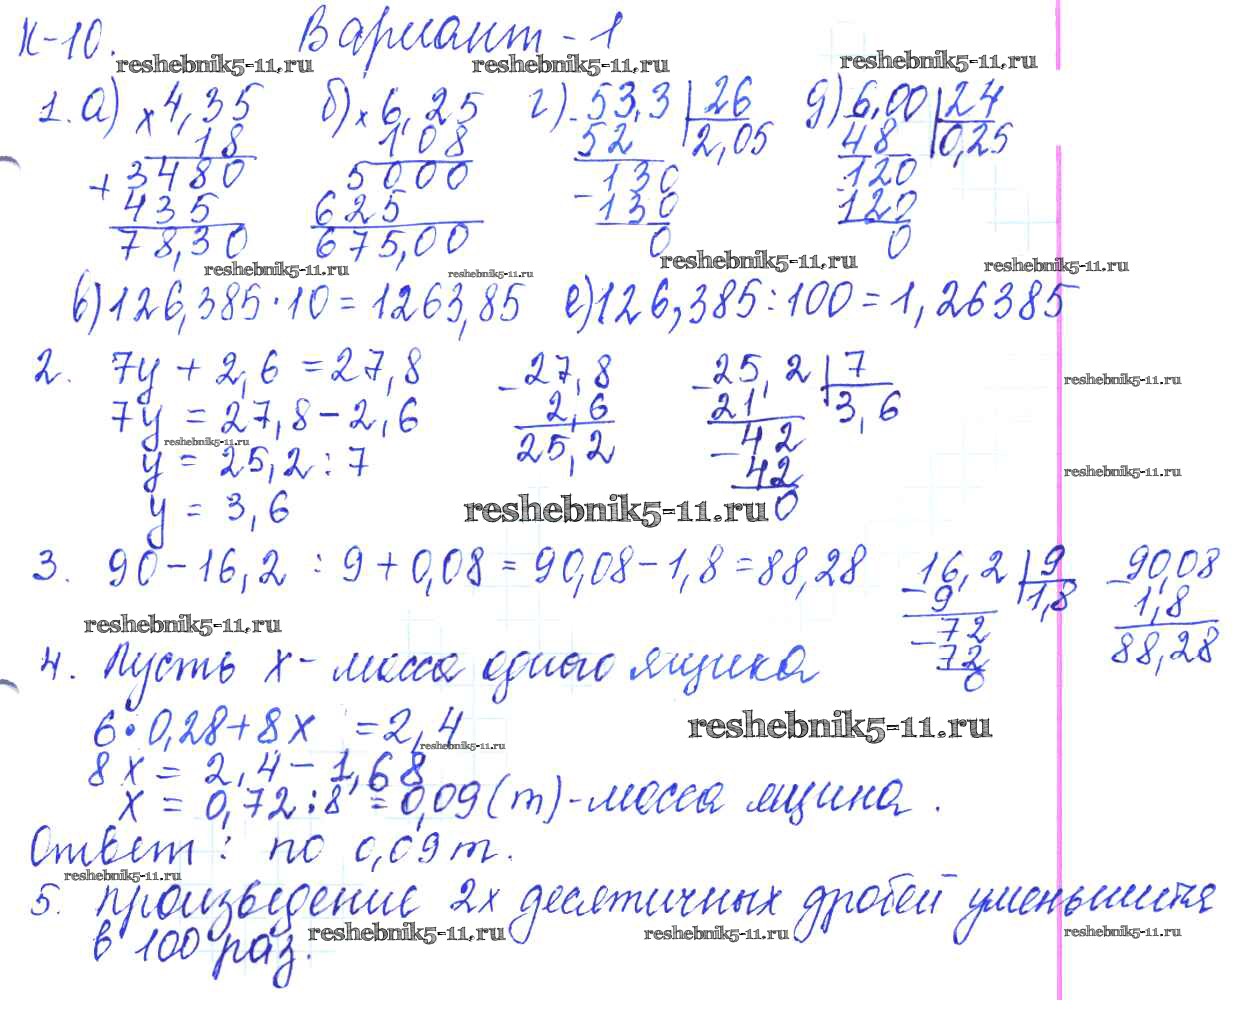 К-10. Вариант-1
reshebnik5-11.ru reshebnik5-11.ru reshebnik5-11.ru
1. а) × 4,35 б) × 6,25 г) - 53,3 | 26 д) 6,00 | 24
18 108 52 2,05 48 0,25
+ 3480 5000 130 120
435 625 - 130 120
78,30 675,00 0 0
reshebnik5-11.ru reshebnik5-11.ru reshebnik5-11.ru reshebnik5-11.ru
в) 126,385·10 = 1263,85 е) 126,385:100 = 1,26385
2. 7y + 2,6 = 27,8 - 27,8 - 25,2 | 7
reshebnik5-11.ru
7y = 27,8 - 2,6 2,6 21 3,6
reshebnik5-11.ru
y = 25,2 : 7 25,2 - 42
42
reshebnik5-11.ru
y = 3,6 0
reshebnik5-11.ru
3. 90 - 16,2 : 9 + 0,08 = 90,08 - 1,8 = 88,28 - 16,2 | 9 - 90,08
9 1,8 1,8
reshebnik5-11.ru
- 72 88,28
72
0
4. Пусть x - масса одного ящика
6·0,28+8x = 2,4
reshebnik5-11.ru
reshebnik5-11.ru
8x = 2,4 - 1,68
x = 0,72:8 = 0,09 (т) - масса ящина.
Ответ: по 0,09 т.
reshebnik5-11.ru
5. произведение 2х десятичных дробей уменьшится
в 100 раз.
reshebnik5-11.ru reshebnik5-11.ru reshebnik5-11.ru